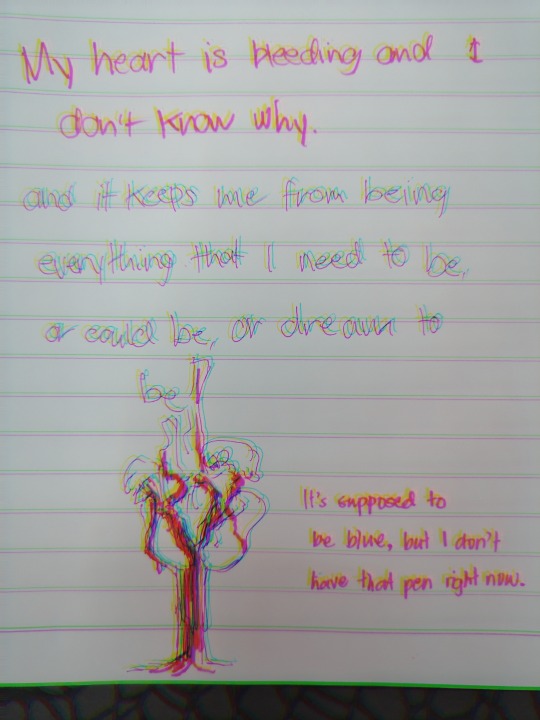 My heart is bleeding and I
don't know why.
and it keeps me from being
everything that I need to be,
or could be, or dream to
be
It's supposed to
be blue, but I don't
have that pen right now.